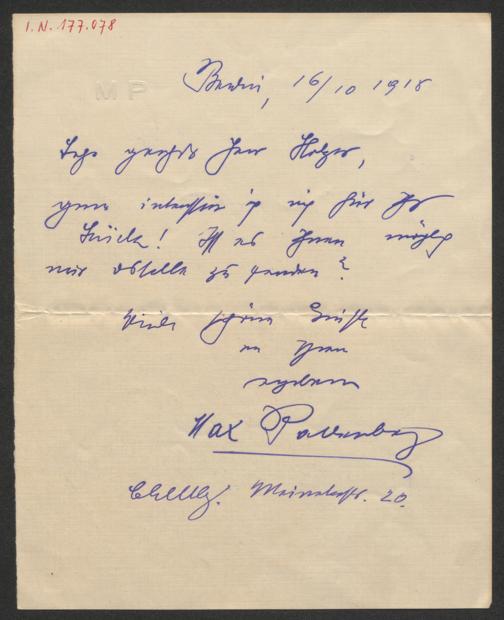 I.N. 177.078
MP
Berlin, 16/10 1918
Sehr geehrter Herr Holzer,
gerne interessire ich mich für Ihr
Stück! Ist es Ihnen möglich
mir dasselbe zu senden?
Viele schöne Grüße
an Ihren
ergebenen
Max Pallenberg
Meinekestr. 20.